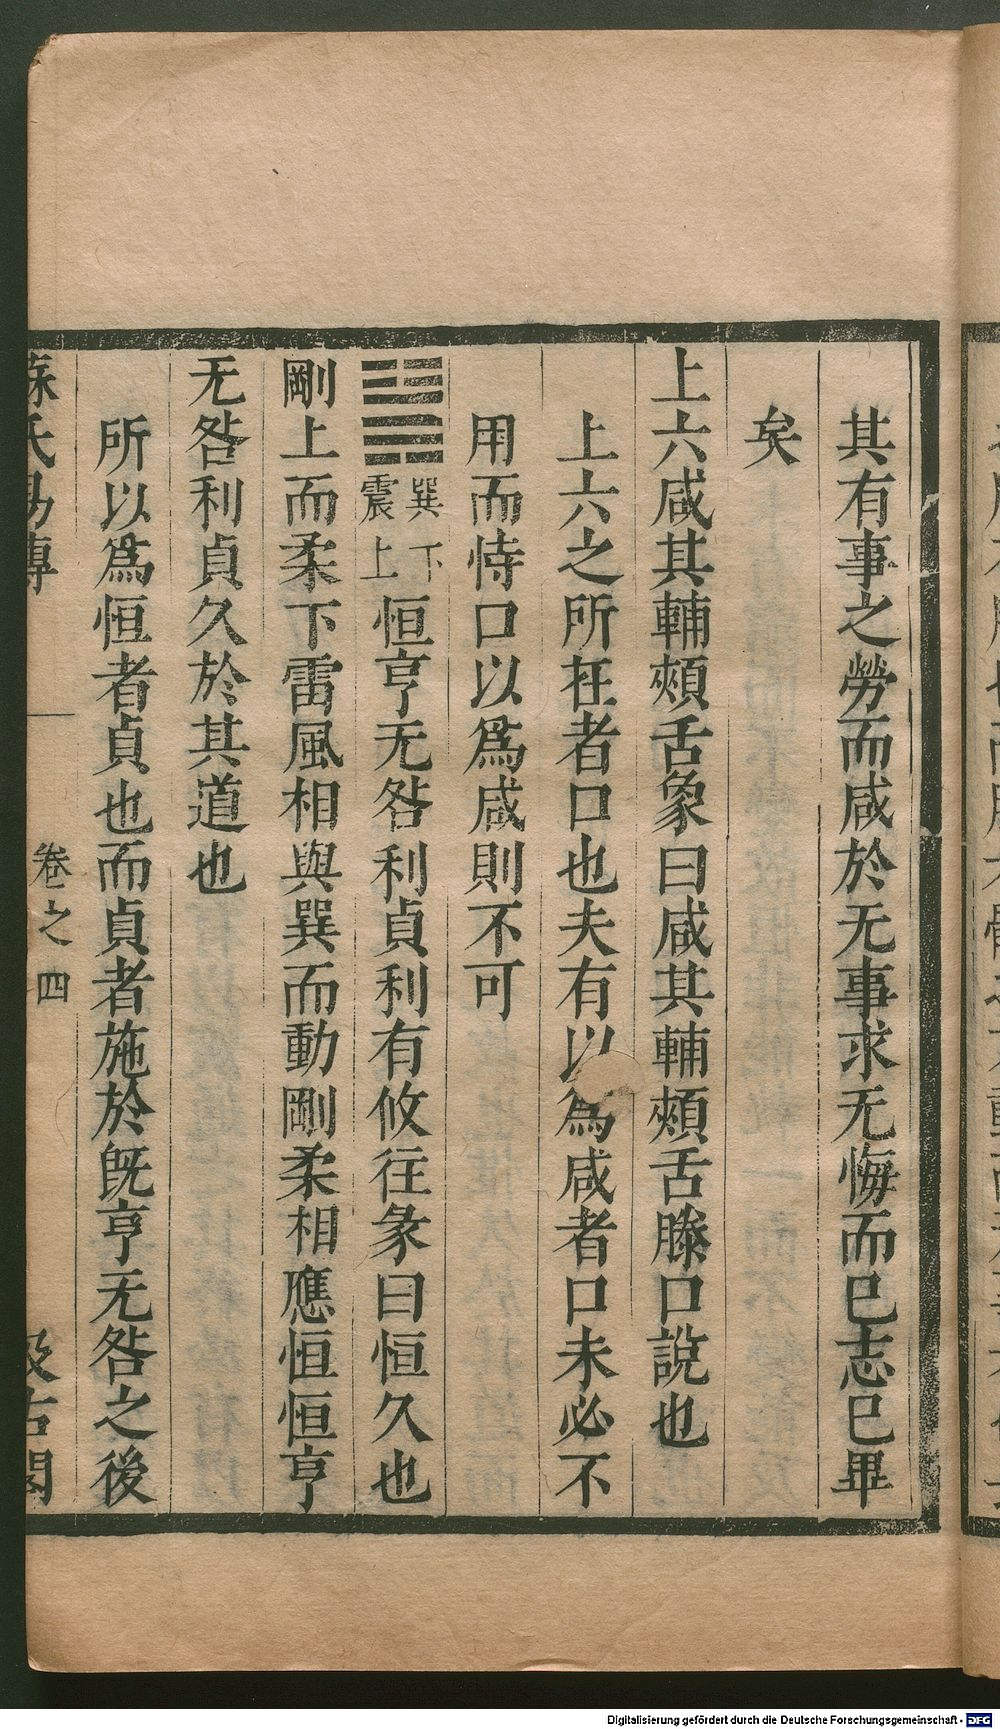 其有事之勞而咸於无事求无悔而已志已畢
矣
上六咸其輔頰舌象曰咸其輔頰舌滕口說也
上六之所在者口也夫有以為咸者口未必不
用而恃口以爲咸則不可
䷟巽下震上恒亨无咎利貞利有攸往彖曰恒久也
剛上而柔下雷風相與巽而動剛柔相應恒恒亨
无咎利貞久於其道也
所以爲恒者貞也而貞者施於旣亨无咎之後
蘇氏易傳
卷之四
汲古閣
Digitalisierung gefördert durch die Deutsche Forschungsgemeinschaft - DFG